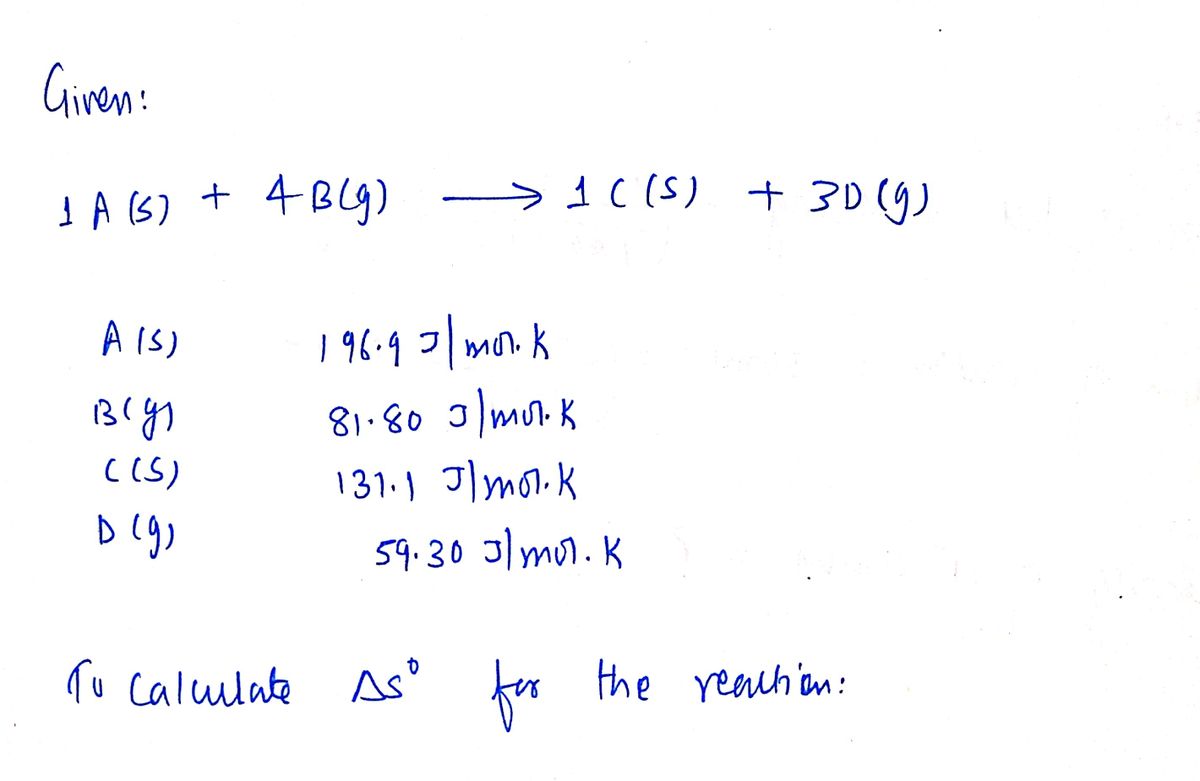 Given:
1 A (s) + 4 B(g) ⟶ 1 C (s) + 3D (g)
A (s) 196.9 J/mol.K
B(g) 81.80 J/mol.K
C (s) 131.1 J/mol.K
D (g) 59.30 J/mol.K
To calculate ΔS° for the reaction: